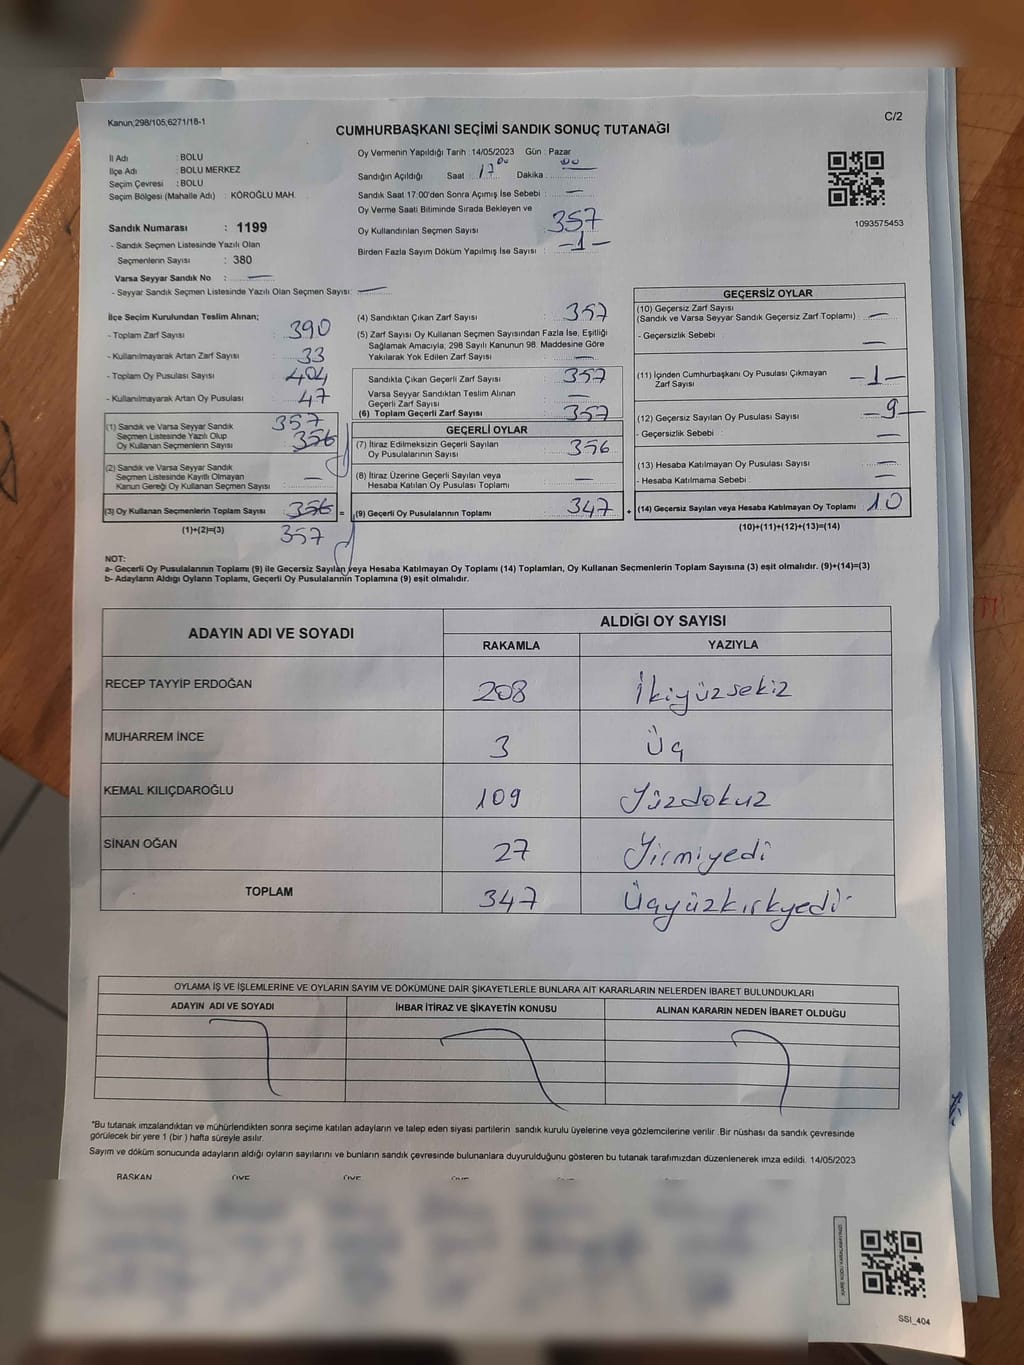 Kanun;298/105,6271/18-1
C/2
CUMHURBAŞKANI SEÇİMİ SANDIK SONUÇ TUTANAĞI
İl Adı : BOLU
İlçe Adı : BOLU MERKEZ
Seçim Çevresi : BOLU
Seçim Bölgesi (Mahalle Adı) : KÖROĞLU MAH.
Sandık Numarası : 1199
- Sandık Seçmen Listesinde Yazılı Olan
Seçmenlerin Sayısı : 380
Varsa Seyyar Sandık No : —
- Seyyar Sandık Seçmen Listesinde Yazılı Olan Seçmen Sayısı: —
Oy Vermenin Yapıldığı Tarih : 14/05/2023 Gün : Pazar
Sandığın Açıldığı Saat : 17 00 Dakika : 00
Sandık Saat 17:00'den Sonra Açımış İse Sebebi : —
Oy Verme Saati Bitiminde Sırada Bekleyen ve
Oy Kullandırılan Seçmen Sayısı : 357
Birden Fazla Sayım Döküm Yapılmış İse Sayısı : -1-
1093575453
İlçe Seçim Kurulundan Teslim Alınan;
- Toplam Zarf Sayısı : 390
- Kullanılmayarak Artan Zarf Sayısı : 33
- Toplam Oy Pusulası Sayısı : 404
- Kullanılmayarak Artan Oy Pusulası : 47
(1) Sandık ve Varsa Seyyar Sandık 357
Seçmen Listesinde Yazılı Olup
Oy Kullanan Seçmenlerin Sayısı : 356
(2) Sandık ve Varsa Seyyar Sandık
Seçmen Listesinde Kayıtlı Olmayan
Kanun Gereği Oy Kullanan Seçmen Sayısı : —
(3) Oy Kullanan Seçmenlerin Toplam Sayısı : 356 =
(1)+(2)=(3) 357
(4) Sandıktan Çıkan Zarf Sayısı : 357
(5) Zarf Sayısı Oy Kullanan Seçmen Sayısından Fazla İse, Eşitliği
Sağlamak Amacıyla, 298 Sayılı Kanunun 98. Maddesine Göre
Yakılarak Yok Edilen Zarf Sayısı : —
Sandıkta Çıkan Geçerli Zarf Sayısı : 357
Varsa Seyyar Sandıktan Teslim Alınan
Geçerli Zarf Sayısı :
(6) Toplam Geçerli Zarf Sayısı : 357
GEÇERLİ OYLAR
(7) İtiraz Edilmeksizin Geçerli Sayılan
Oy Pusulalarının Sayısı : 356
(8) İtiraz Üzerine Geçerli Sayılan veya
Hesaba Katılan Oy Pusulası Toplamı : —
(9) Geçerli Oy Pusulalarının Toplamı : 347 +
GEÇERSİZ OYLAR
(10) Geçersiz Zarf Sayısı
(Sandık ve Varsa Seyyar Sandık Geçersiz Zarf Toplamı) : —
- Geçersizlik Sebebi : —
(11) İçinden Cumhurbaşkanı Oy Pusulası Çıkmayan
Zarf Sayısı : -1-
(12) Geçersiz Sayılan Oy Pusulası Sayısı : -9-
- Geçersizlik Sebebi : —
(13) Hesaba Katılmayan Oy Pusulası Sayısı : —
- Hesaba Katılmama Sebebi : —
(14) Geçersiz Sayılan veya Hesaba Katılmayan Oy Toplamı : 10
(10)+(11)+(12)+(13)=(14)
NOT:
a- Geçerli Oy Pusulalarının Toplamı (9) ile Geçersiz Sayılan veya Hesaba Katılmayan Oy Toplamı (14) Toplamları, Oy Kullanan Seçmenlerin Toplam Sayısına (3) eşit olmalıdır. (9)+(14)=(3)
b- Adayların Aldığı Oyların Toplamı, Geçerli Oy Pusulalarının Toplamına (9) eşit olmalıdır.
ADAYIN ADI VE SOYADI
ALDIĞI OY SAYISI
RAKAMLA YAZIYLA
RECEP TAYYİP ERDOĞAN 208 İkiyüzsekiz
MUHARREM İNCE 3 Üç
KEMAL KILIÇDAROĞLU 109 Yüzdokuz
SİNAN OĞAN 27 Yirmiyedi
TOPLAM 347 Üçyüzkırkyedi
OYLAMA İŞ VE İŞLEMLERİNE VE OYLARIN SAYIM VE DÖKÜMÜNE DAİR ŞİKAYETLERLE BUNLARA AİT KARARLARIN NELERDEN İBARET BULUNDUKLARI
ADAYIN ADI VE SOYADI İHBAR İTİRAZ VE ŞİKAYETİN KONUSU ALINAN KARARIN NEDEN İBARET OLDUĞU
*Bu tutanak imzalandıktan ve mühürlendikten sonra seçime katılan adayların ve talep eden siyasi partilerin sandık kurulu üyelerine veya gözlemcilerine verilir. Bir nüshası da sandık çevresinde
görülecek bir yere 1 (bir) hafta süreyle asılır.
Sayım ve döküm sonucunda adayların aldığı oyların sayılarını ve bunların sandık çevresinde bulunanlara duyurulduğunu gösteren bu tutanak tarafımızdan düzenlenerek imza edildi. 14/05/2023
BAŞKAN ÜYE ÜYE ÜYE ÜYE
SSI_404